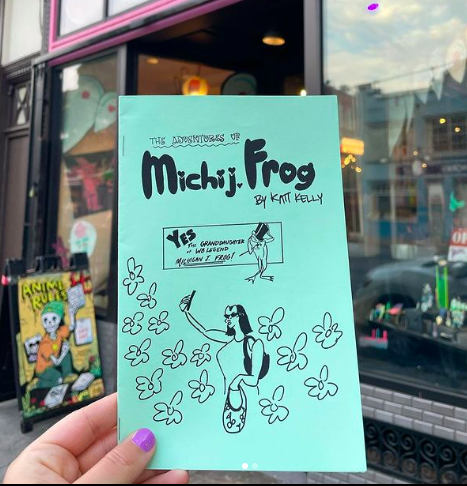 THE ADVENTURES OF
Michi j. Frog
BY KATT KELLY
YES
THE GRANDDAUGHTER
OF WB LEGEND
MICHIGAN J. FROG!
ANIME
RULES